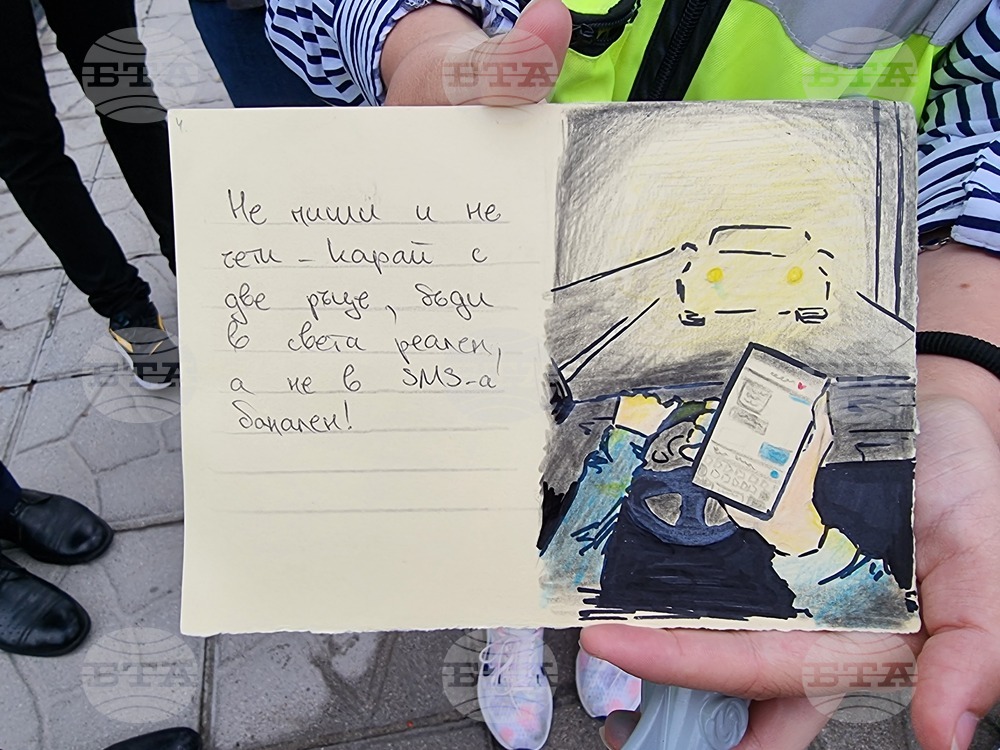 Не пиши и не
чети - Карай с
две ръце, бъди
в света реален,
а не в SMS-а
банален!
БТА
БТА
БТА
БТА
БТА
БТА
БТА
БТА
БТА